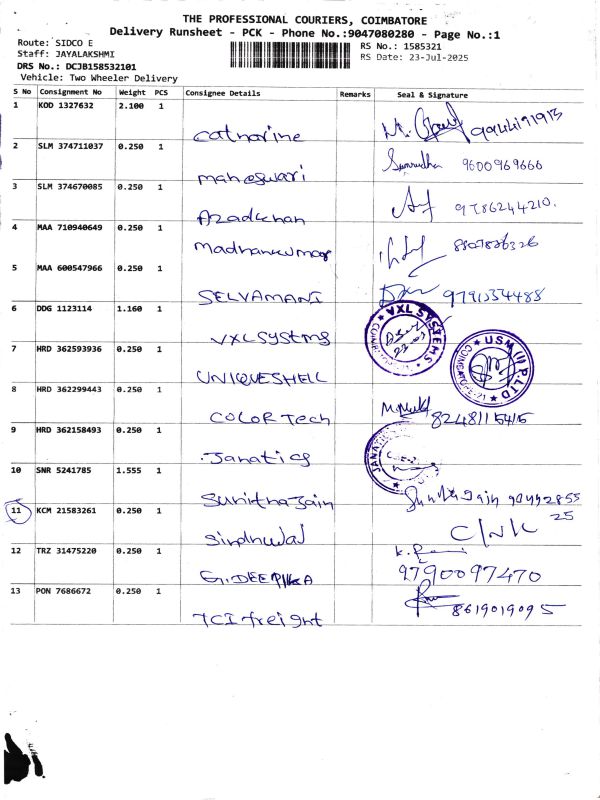 THE PROFESSIONAL COURIERS, COIMBATORE
Delivery Runsheet - PCK - Phone No.:9047080280 - Page No.:1
Route: SIDCO E
RS No.: 1585321
Staff: JAYALAKSHMI
RS Date: 23-Jul-2025
DRS No.: DCJB158532101
Vehicle: Two Wheeler Delivery
S No Consignment No Weight PCS Consignee Details Remarks Seal & Signature
1 KOD 1327632 2.100 1 Catharine
2 SLM 374711037 0.250 1 Maheswari 9600969666
3 SLM 374670085 0.250 1 Azadkhan 9786244210.
4 MAA 710940649 0.250 1 Madhankumar
5 MAA 600547966 0.250 1 SELVAMANI 9791334488
6 DDG 1123114 1.160 1 VXL Systems VXL SYSTEMS
7 HRD 362593936 0.250 1 UNIQUESHELL USM (I) P.LTD COIMBATORE-21
8 HRD 362299443 0.250 1 COLOR Tech 8248115415
9 HRD 362158493 0.250 1 Janatics
10 SNR 5241785 1.555 1 Sunithajain
11 KCM 21583261 0.250 1 C/N/K
12 TRZ 31475220 0.250 1 G.DEEPIKA 9790097470
13 PON 7686672 0.250 1 TCI freight 8619019095